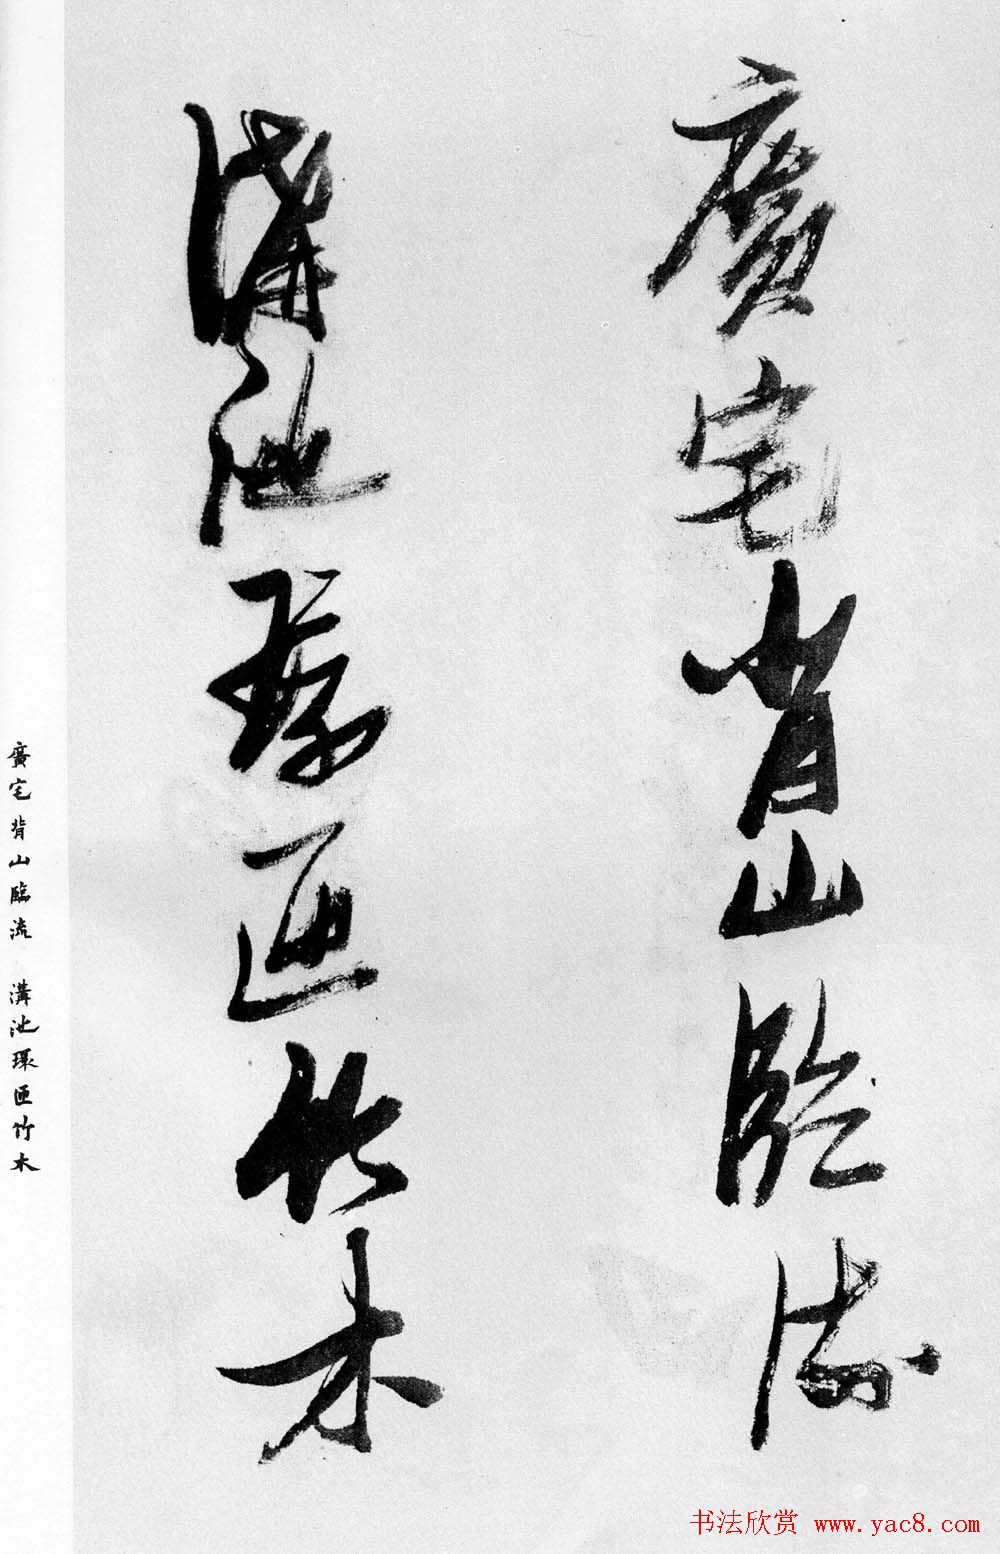 廣宅背山臨流
溝池環匝竹木
廣宅背山臨流 溝池環匝竹木
书法欣赏 www.yac8.com